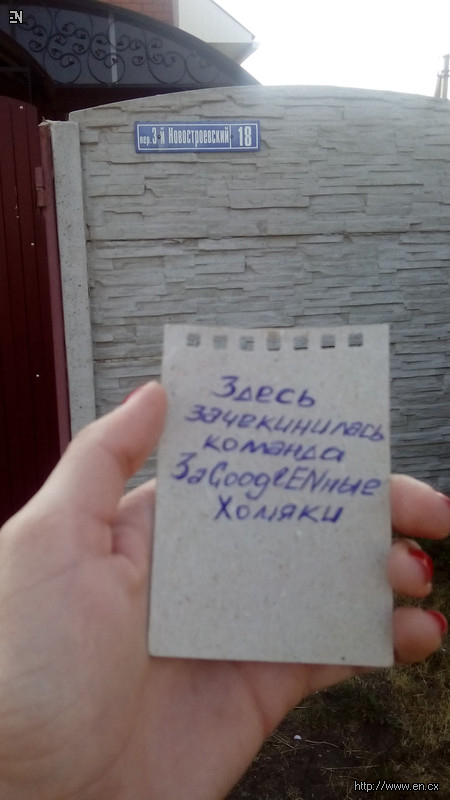 EN
пер. 3-й Новостроевский 18
Здесь
зачекинилась
команда
ЗаGooglENные
Хомяки
http://www.en.cx